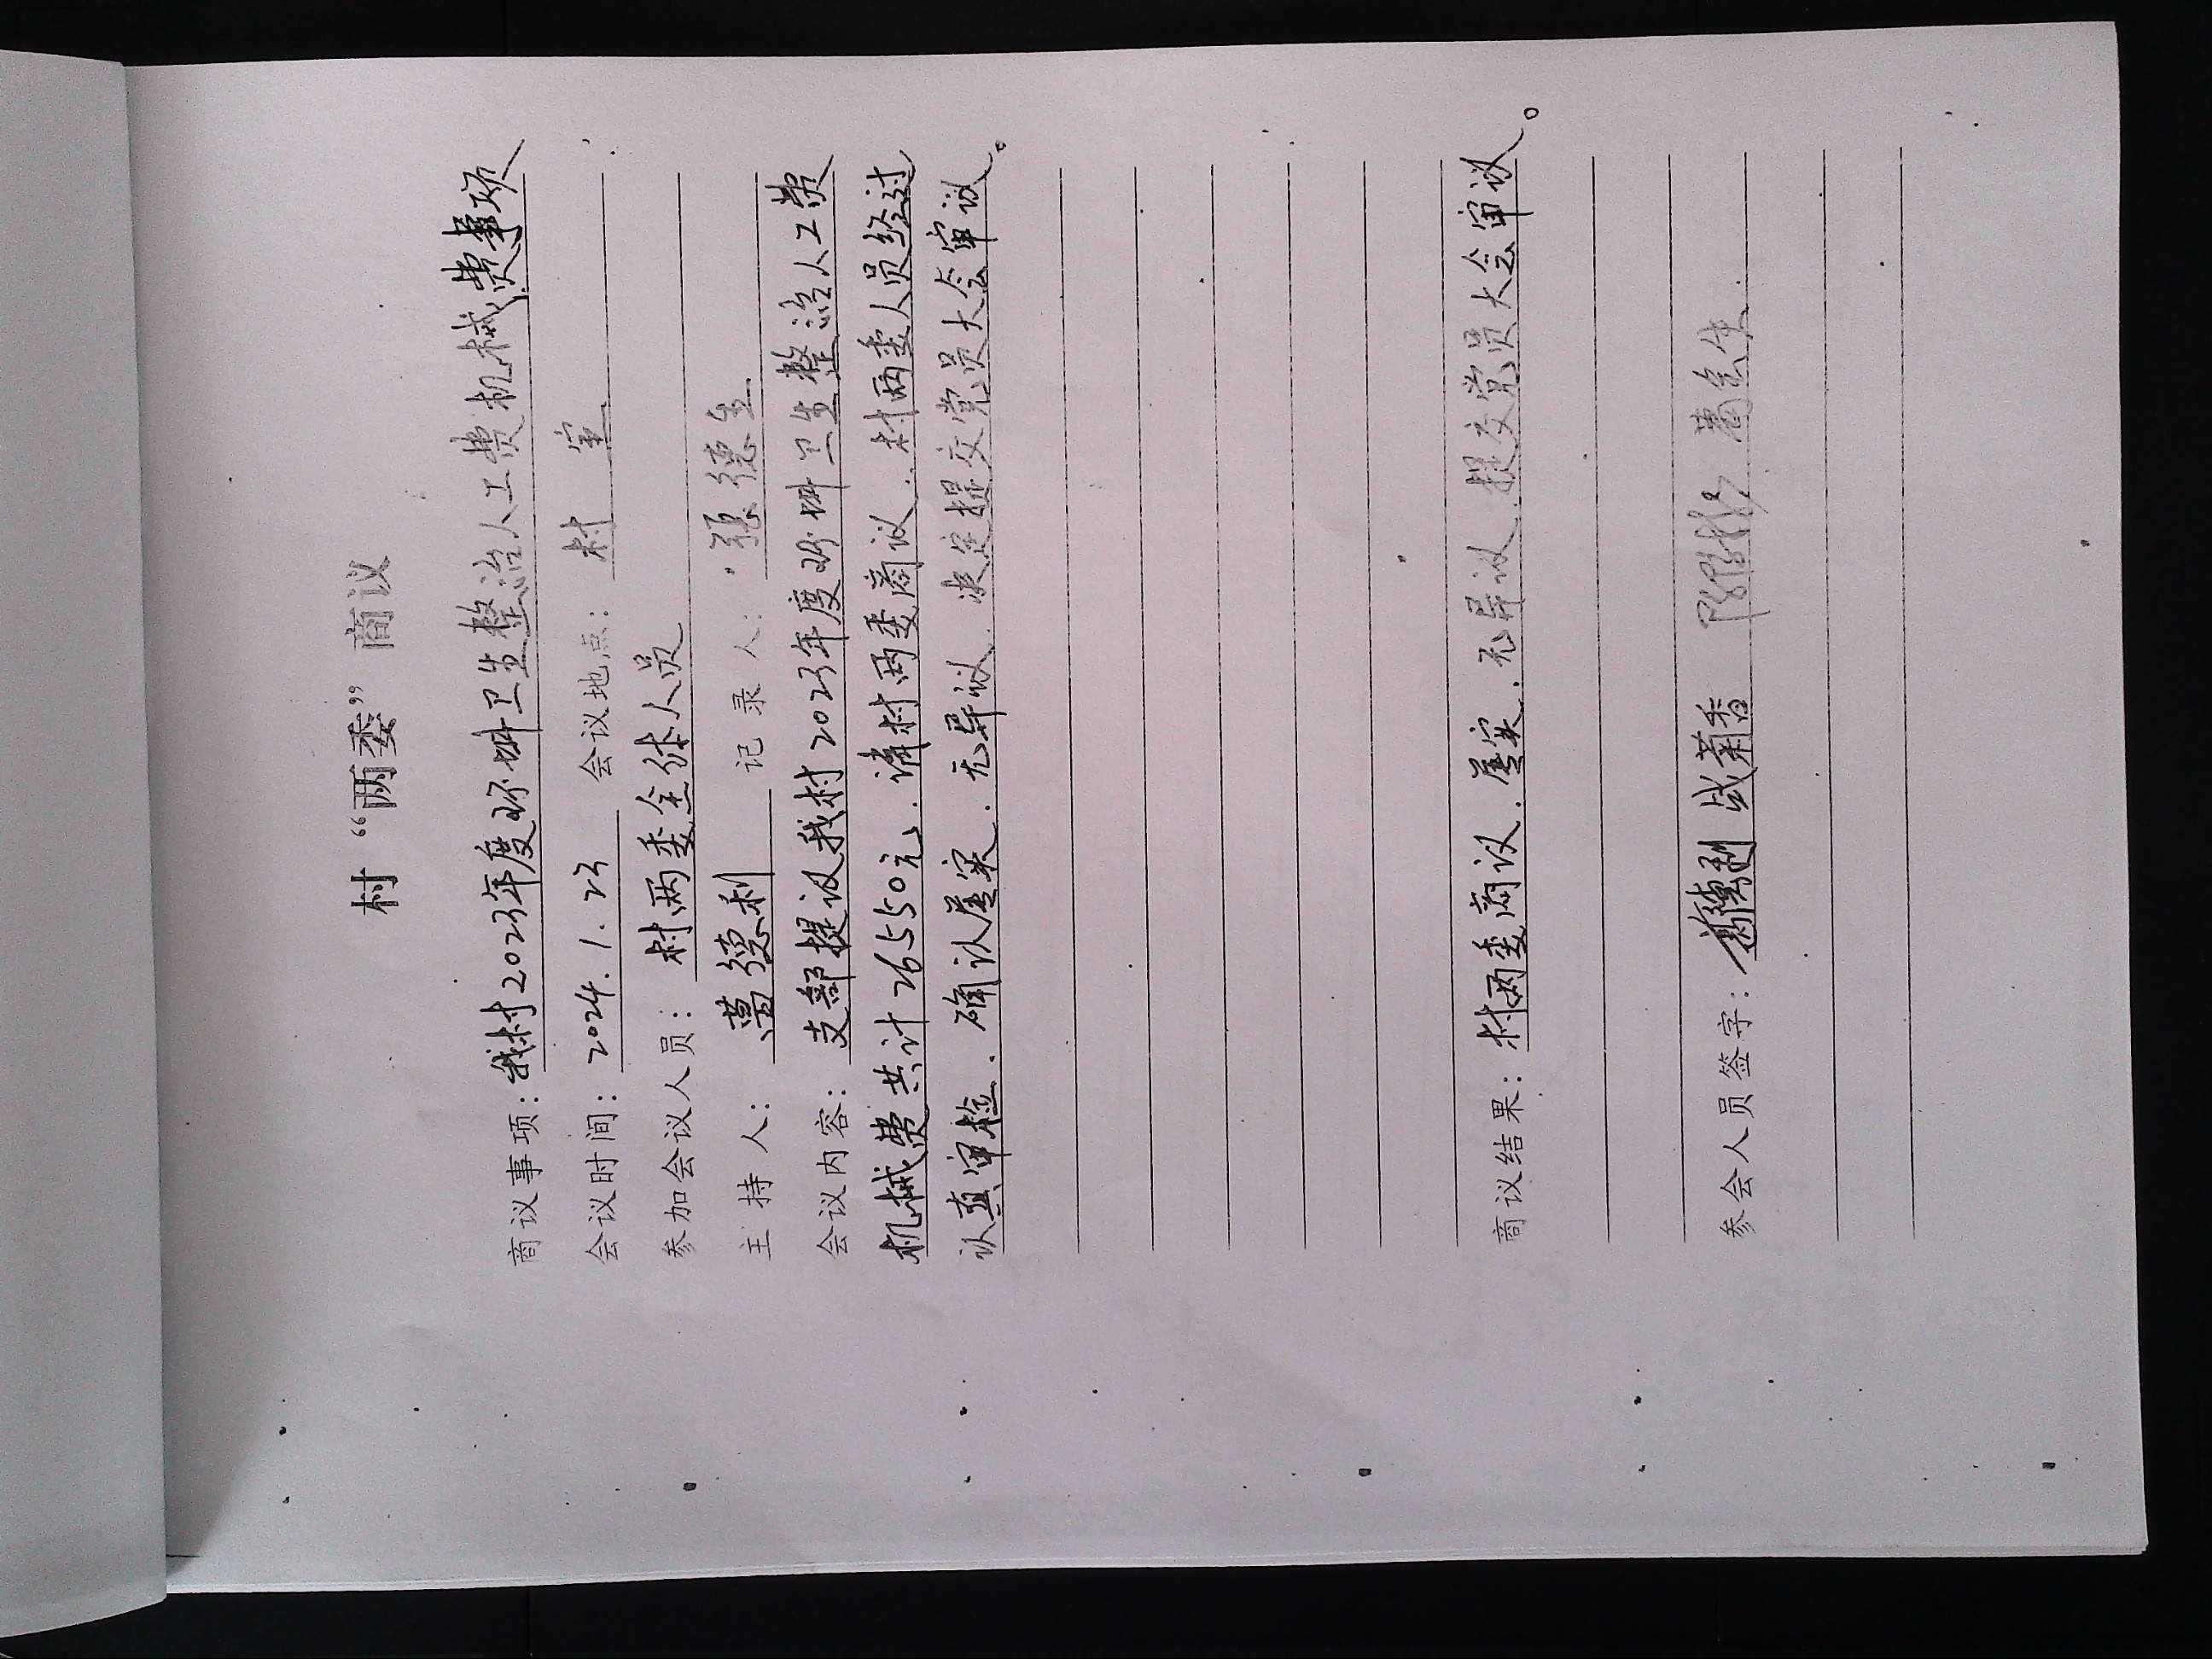 村“两委”商议
商议事项：我村2023年度环卫生整治人工费机械费事项
会议时间：2024.1.23 会议地点：村室
参加会议人员：村两委全体人员
主持人：葛德利 记录人：德生
会议内容：支部提议我村2023年度环卫生整治人工费
机械费共计26550元，请村两委商议，村两委人员经过
认真审检，确认属实，无异议，决定提交党员大会审议。
商议结果：村两委商议，属实，无异议，提交党员大会审议。
参会人员签字：菊香